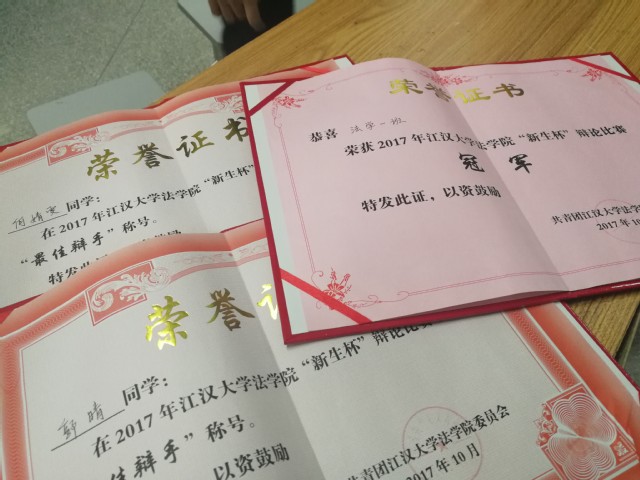 荣誉证书
恭喜 法学一班
荣获2017年江汉大学法学院“新生杯”辩论比赛
冠军
特发此证，以资鼓励
共青团江汉大学法学
2017年10
荣誉证书
同学：
在2017年江汉大学法学院“新生杯”
“最佳辩手”称号。
特发此
荣誉证
郭晴 同学：
在2017年江汉大学法学院“新生杯”辩论比
佳辩手”称号。
以资鼓励
共青团江汉大学法学院委员会
2017年10月